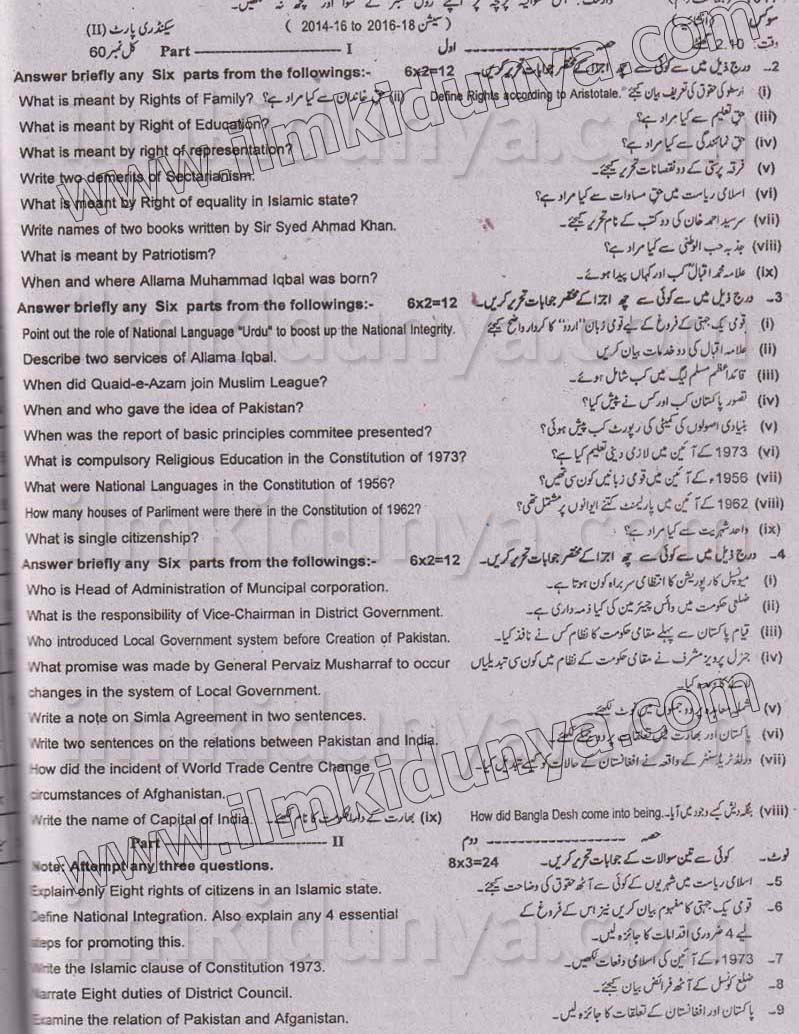 سیکنڈری پارٹ (II) (سیشن 2014-16 to 2016-18)
کل نمبر 60 Part I حصہ اول وقت: 2.10
Answer briefly any Six parts from the followings:- 6x2=12 2۔ درج ذیل میں سے کوئی سے چھ اجزا کے مختصر جوابات تحریر کریں۔
What is meant by Rights of Family? (ii) حقِ خاندان سے کیا مراد ہے؟ Define Rights according to Aristotale. (i) ارسطو کی حقوق کی تعریف بیان کیجئے
What is meant by Right of Education? (iii) حقِ تعلیم سے کیا مراد ہے؟
What is meant by right of representation? (iv) حقِ نمائندگی سے کیا مراد ہے؟
Write two demerits of Sectarianism. (v) فرقہ پرستی کے دو نقصانات تحریر کیجئے۔
What is meant by Right of equality in Islamic state? (vi) اسلامی ریاست میں حقِ مساوات سے کیا مراد ہے؟
Write names of two books written by Sir Syed Ahmad Khan. (vii) سرسید احمد خان کی دو کتب کے نام تحریر کیجئے۔
What is meant by Patriotism? (viii) جذبہ حب الوطنی سے کیا مراد ہے؟
When and where Allama Muhammad Iqbal was born? (ix) علامہ محمد اقبال کب اور کہاں پیدا ہوئے۔
Answer briefly any Six parts from the followings:- 6x2=12 3۔ درج ذیل میں سے کوئی سے چھ اجزا کے مختصر جوابات تحریر کریں۔
Point out the role of National Language "Urdu" to boost up the National Integrity. (i) قومی یک جہتی کے فروغ کے لیے قومی زبان "اردو" کا کردار واضح کیجئے
Describe two services of Allama Iqbal. (ii) علامہ اقبال کی دو خدمات بیان کریں
When did Quaid-e-Azam join Muslim League? (iii) قائداعظم مسلم لیگ میں کب شامل ہوئے۔
When and who gave the idea of Pakistan? (iv) تصور پاکستان کب اور کس نے پیش کیا؟
When was the report of basic principles commitee presented? (v) بنیادی اصولوں کی کمیٹی کی رپورٹ کب پیش ہوئی؟
What is compulsory Religious Education in the Constitution of 1973? (vi) 1973 کے آئین میں لازمی دینی تعلیم کیا ہے؟
What were National Languages in the Constitution of 1956? (vii) 1956ء کے آئین میں قومی زبانیں کون سی تھیں؟
How many houses of Parliment were there in the Constitution of 1962? (viii) 1962 کے آئین میں پارلیمنٹ کتنے ایوانوں پر مشتمل تھی؟
What is single citizenship? (ix) واحد شہریت سے کیا مراد ہے؟
Answer briefly any Six parts from the followings:- 6x2=12 4۔ درج ذیل میں سے کوئی سے چھ اجزا کے مختصر جوابات تحریر کریں۔
Who is Head of Administration of Muncipal corporation. (i) میونسپل کارپوریشن کا انتظامی سربراہ کون ہوتا ہے۔
What is the responsibility of Vice-Chairman in District Government. (ii) ضلعی حکومت میں وائس چیئرمین کی کیا ذمہ داری ہے۔
Who introduced Local Government system before Creation of Pakistan. (iii) قیام پاکستان سے پہلے مقامی حکومت کا نظام کس نے نافذ کیا۔
What promise was made by General Pervaiz Musharraf to occur (iv) جنرل پرویز مشرف نے مقامی حکومت کے نظام میں کون سی تبدیلیاں
changes in the system of Local Government. لانے کا وعدہ کیا۔
Write a note on Simla Agreement in two sentences. (v) شملہ معاہدہ پر دو جملوں میں نوٹ لکھئے۔
Write two sentences on the relations between Pakistan and India. (vi) پاکستان اور بھارت کے تعلقات پر دو
How did the incident of World Trade Centre Change (vii) ورلڈ ٹریڈ سنٹر کے واقعہ نے افغانستان کے حالات کو کیسے تبدیل کیا۔
circumstances of Afghanistan.
Write the name of Capital of India. (ix) بھارت کے دارالحکومت کا نام لکھئے۔ How did Bangla Desh come into being. (viii) بنگلہ دیش کیسے وجود میں آیا۔
Part II حصہ دوم
Note: Attempt any three questions. 8x3=24 نوٹ۔ کوئی سے تین سوالات کے جوابات تحریر کریں۔
Explain only Eight rights of citizens in an Islamic state. 5۔ اسلامی ریاست میں شہریوں کے کوئی سے آٹھ حقوق کی وضاحت کیجئے۔
Define National Integration. Also explain any 4 essential 6۔ قومی یک جہتی کا مفہوم بیان کریں نیز اس کے فروغ کے
steps for promoting this. لیے 4 ضروری اقدامات کا جائزہ لیں۔
Write the Islamic clause of Constitution 1973. 7۔ 1973ء کے آئین کی اسلامی دفعات لکھیں۔
Narrate Eight duties of District Council. 8۔ ضلع کونسل کے آٹھ فرائض بیان کیجئے۔
Examine the relation of Pakistan and Afganistan. 9۔ پاکستان اور افغانستان کے تعلقات کا جائزہ لیں۔
www.ilmkidunya.com
ilmkidunya.com
www.ilmkidunya.com